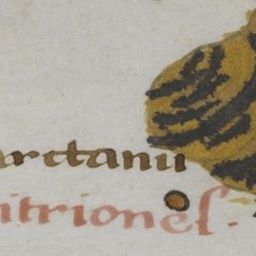 arctanii
itriones.